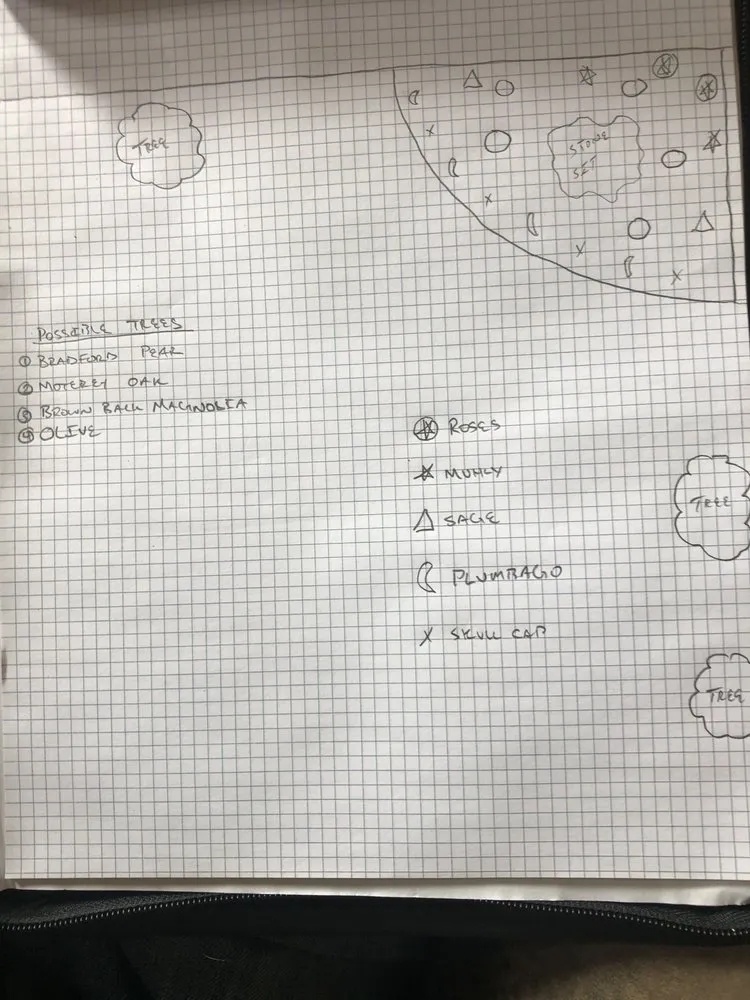 TREE
STONE
SET
POSSIBLE TREES
① BRADFORD PEAR
② MOTEREY OAK
③ BROWN BACK MAGNOLIA
④ OLIVE
ROSES
MUHLY
SAGE
PLUMBAGO
SKULL CAP
TREE
TREE